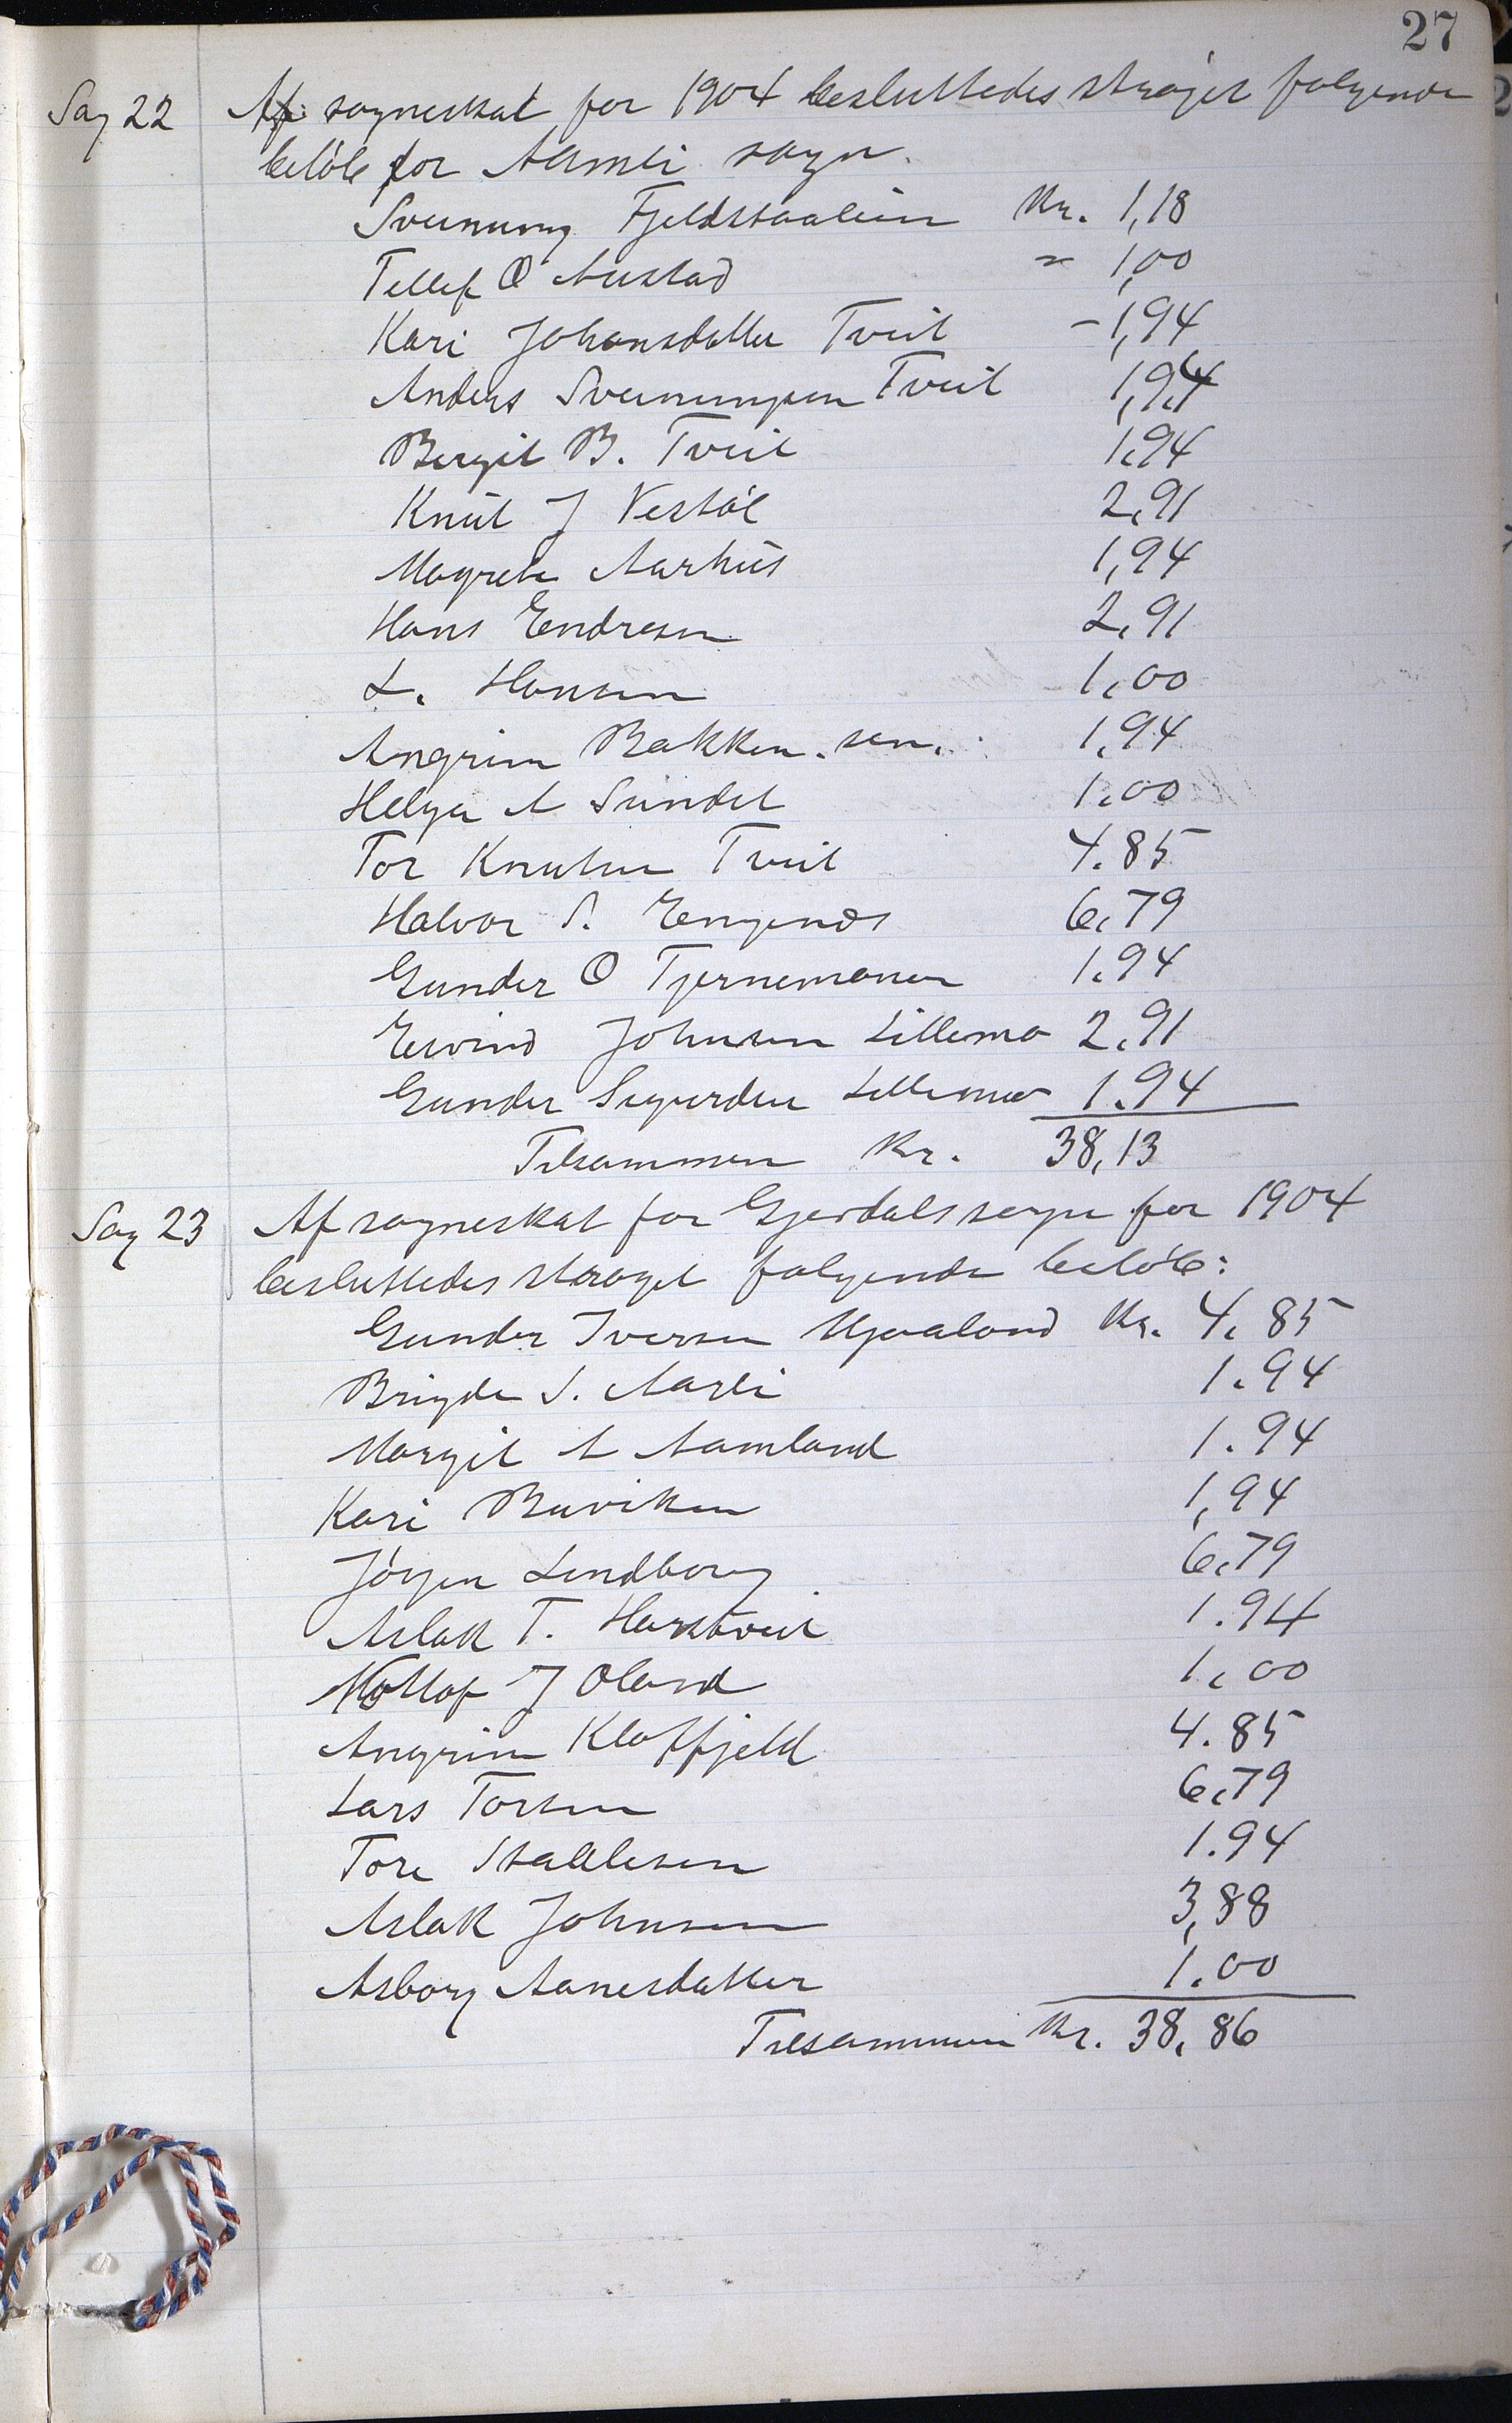 27
Sag 22 Af sogneskat for 1904 besluttedes strøget følgende
beløb for Aamli sogn.
Sveinung Fjeldstaalien Kr. 1,18
Tellef O Austad " 1,00
Kari Johansdatter Tveit - 1,94
Anders Sveinungsen Tveit 1,94
Bergit B. Tveit 1.94
Knut J Vestøl 2,91
Magrete Aarhus 1,94
Hans Endresen 2,91
L. Hansen 1,00
Angrim Bakken sen. 1,94
Helga A Sundet 1.00
Tor Knutsen Tveit 4.85
Halvor S. Engenes 6,79
Gunder O Tjernemoen 1.94
Eivind Johnsen Lillemo 2.91
Gunder Sigurdsen Lillemo 1.94
Tilsammen Kr. 38,13
Sag 23 Af sogneskat for Gjøvdals sogn for 1904
besluttedes strøget følgende beløb:
Gunder Iversen Mjaaland Kr. 4,85
Brigde S. Aasli 1.94
Margit A Aamland 1.94
Kari Buviken 1,94
Jörgen Lindborg 6,79
Aslak T. Harstveit 1.94
Nottof J Oland 1,00
Angrim Kloffjeld 4.85
Lars Torsen 6,79
Tore Stallesen 1.94
Aslak Johnsen 3,88
Asborg Aanesdatter 1.00
Tilsammen Kr. 38,86